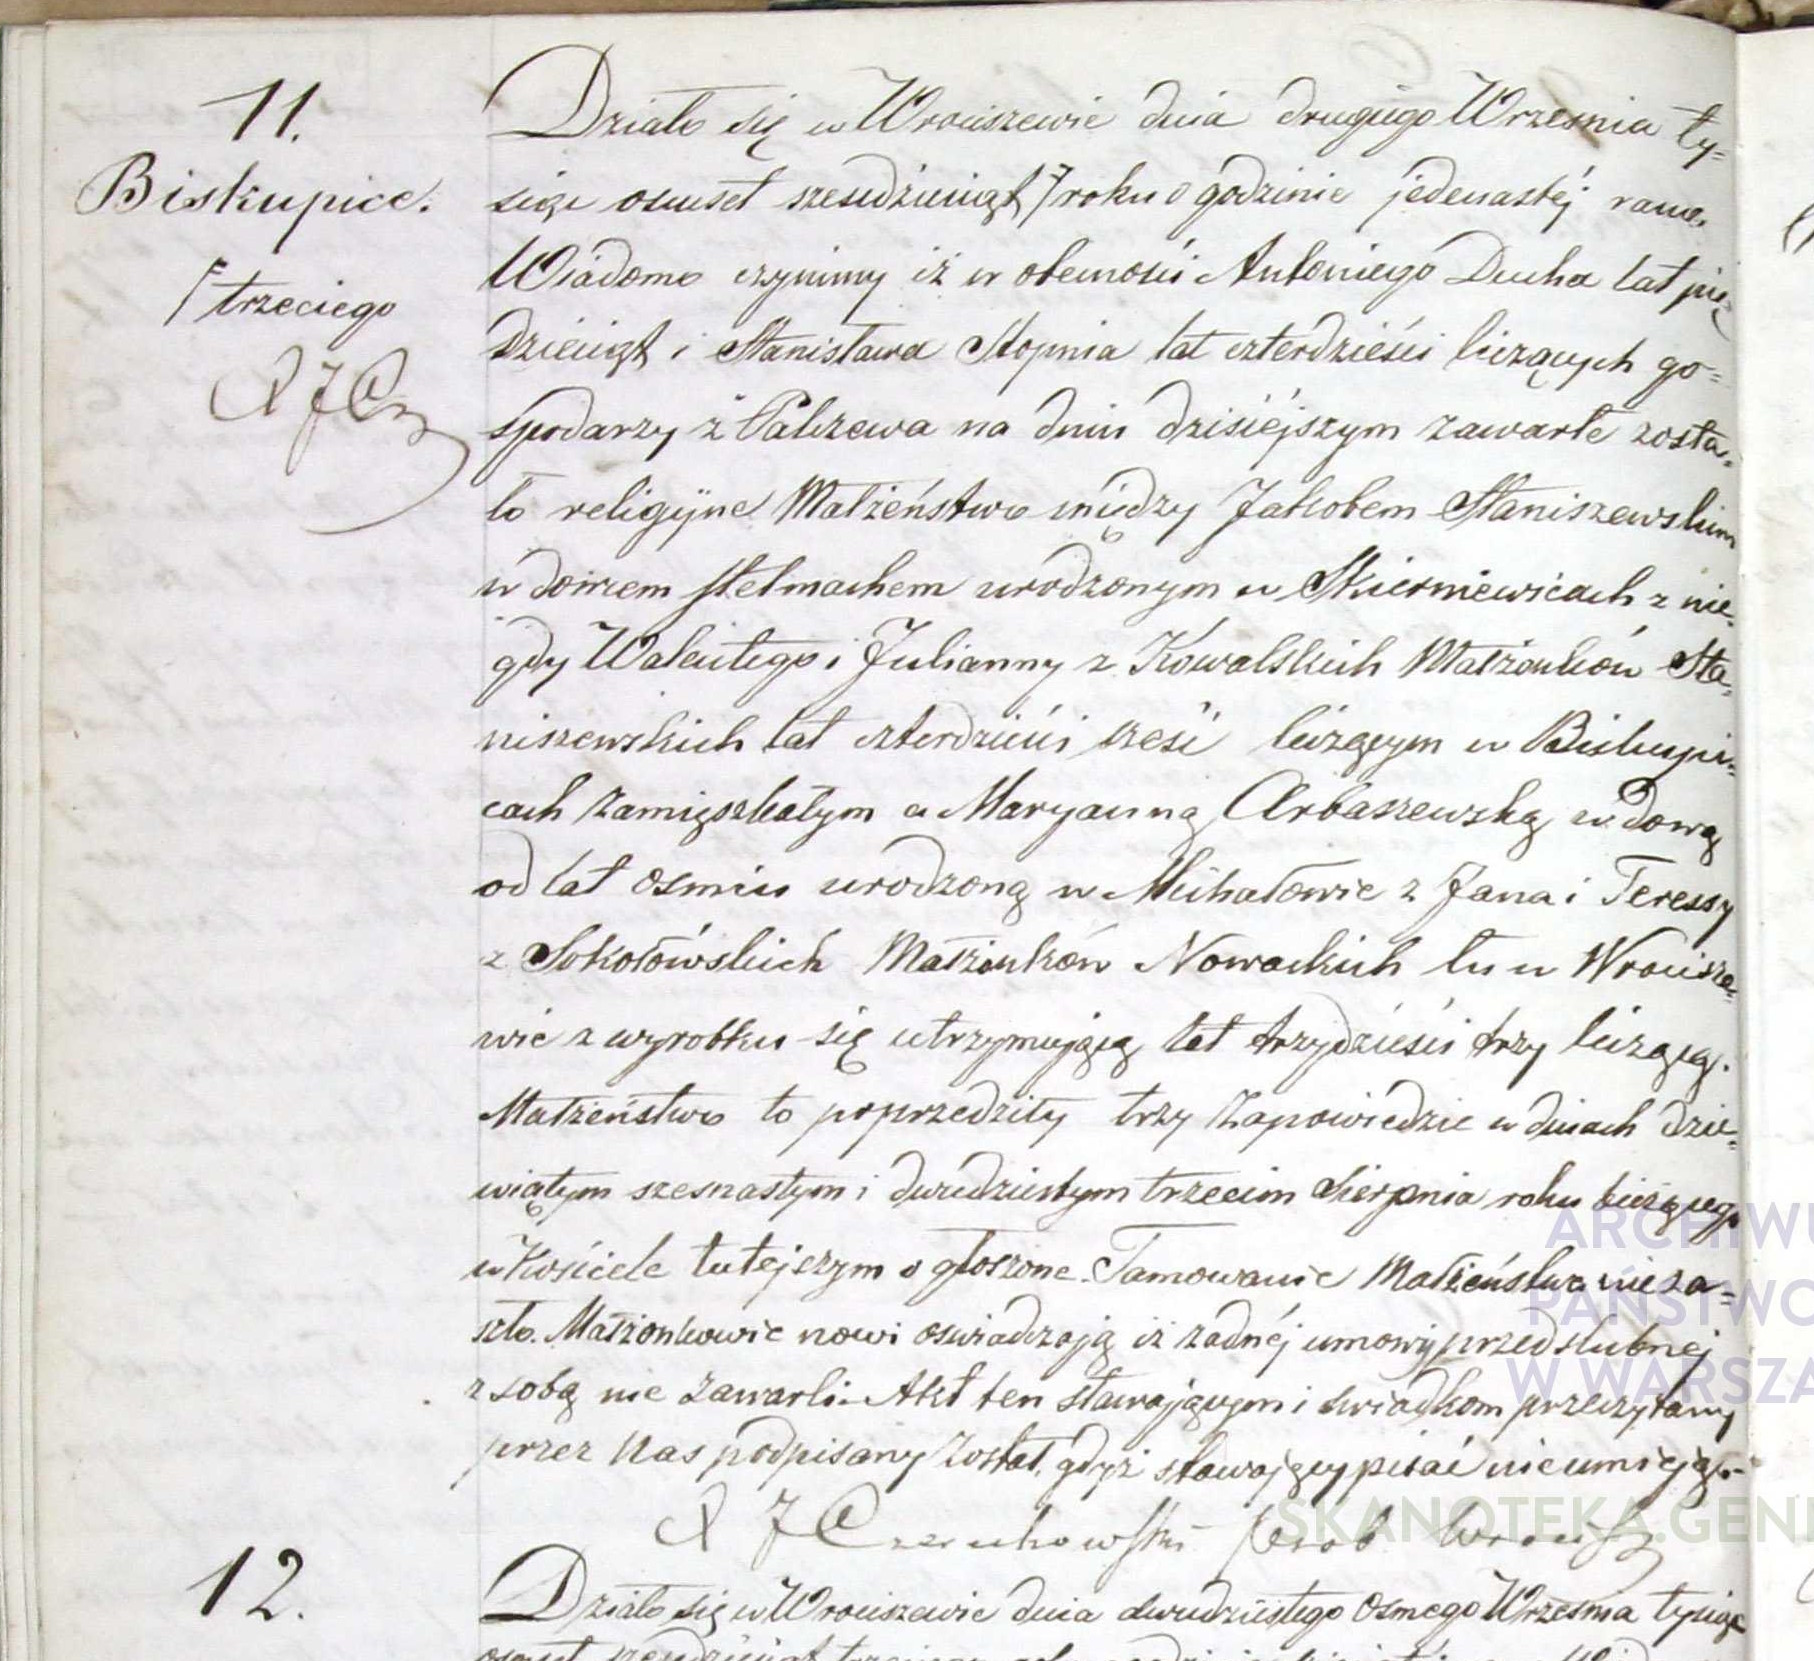 11.
Biskupice.
trzeciego
XJC
Działo się w Wrociszewie dnia drugiego Września ty=
siąc osmset szesdziesiąt roku o godzinie jedenastéj rano.
Wiadomo czynimy iż w obecności Antoniego Ducha lat pię
dziesiąt i Stanisława Stopnia lat czterdzieści liczących go=
spodarzy z Palczewa na dniu dzisiéjszym zawarte zosta=
ło religijne Małżeństwo między Jakóbem Staniszewskim
wdowcem stelmachem urodzonym w Skierniewicach z nie=
gdy Walentego i Julianny z Kowalskich Małżonków Sta=
niszewskich lat czterdzieści sześć liczącym w Biskupi=
cach zamięszkałym a Maryanną Arbaszewską wdową
od lat osmiu urodzoną w Michałowie z Jana i Teressy
z Sokołówskich Małżonków Nowackich tu w Wrocisze=
wie z wyrobku się utrzymującą lat trzydzieści trzy liczącą.
Małżeństwo to poprzedziły trzy zapowiedzie w dniach dzie=
wiątym szesnastym i dwudziestym trzecim Sierpnia roku bieżącego
w Kościele tutejszym ogłoszone. Tamowanie Małżeństwa nie za=
szło. Małżonkowie nowi oswiadczają iż żadnéj umowy przedslubnej
z sobą nie zawarli. Akt ten stawającym i swiadkom przeczytany
przez Nas podpisany został, gdyż stawający pisać nie umieją.
X J Czechowski Prob Wrocisz
12.
Działo się w Wrociszewie dnia dwudziestego osmego Września tysiąc
osmset szesdziesiąt trzeciego roku o godzinie
ARCHIWU
PAŃSTWO
W WARSZA
SKANOTEKA.GENE